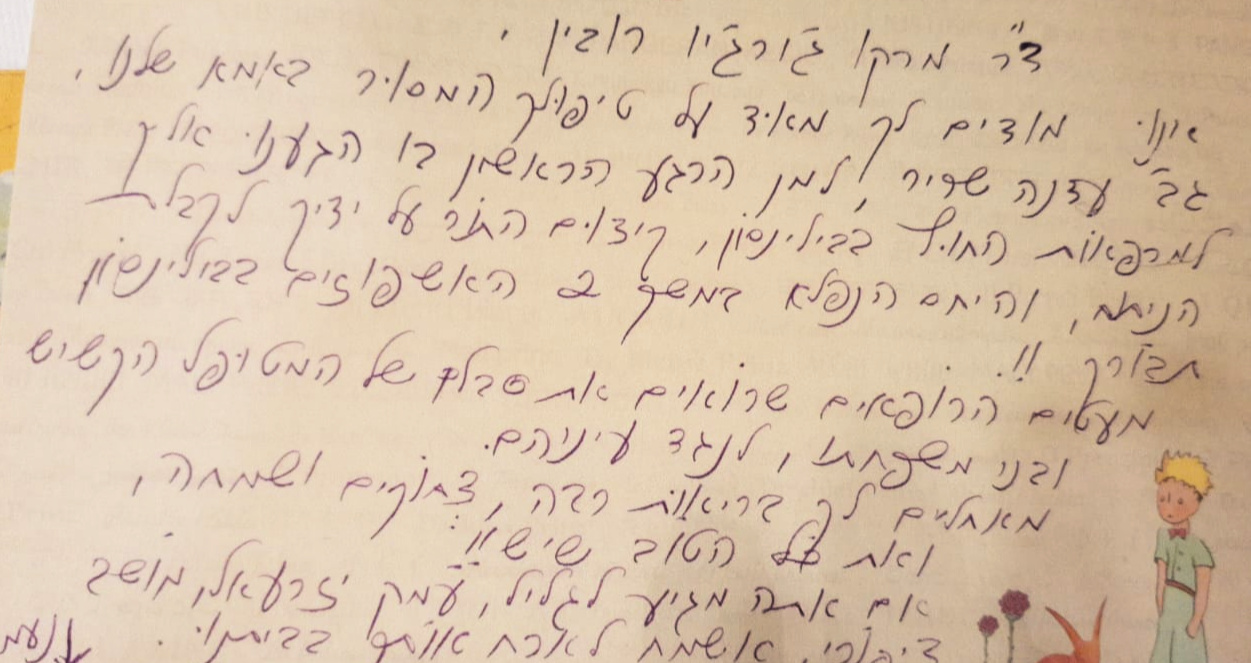 ד"ר מרקו ג'ורג'יו רובין,
אנו מודים לך מאוד על טיפולך המסור באמא שלנו,
גב' עדנה שפיר, למן הרגע הראשון בו הגענו אליך
למרפאות החוץ בבילינסון, קיצוים התור על ידיך לקבלת
הניתוח, והיחס הנפלא במשך 2 האשפוזים בבילינסון
תבורך!!
מעטים הרופאים שרואים את סבלם של המטופל הקשיש
ובני משפחתו, לנגד עיניהם.
מאחלים לך בריאות רבה, צחוקים ושמחה,
ואת כל הטוב שישנו
אם אתה מגיע לגליל, עמק יזרעאל, מושב
ציפורי, אשמח לארח אותך בביתנו. נעמ